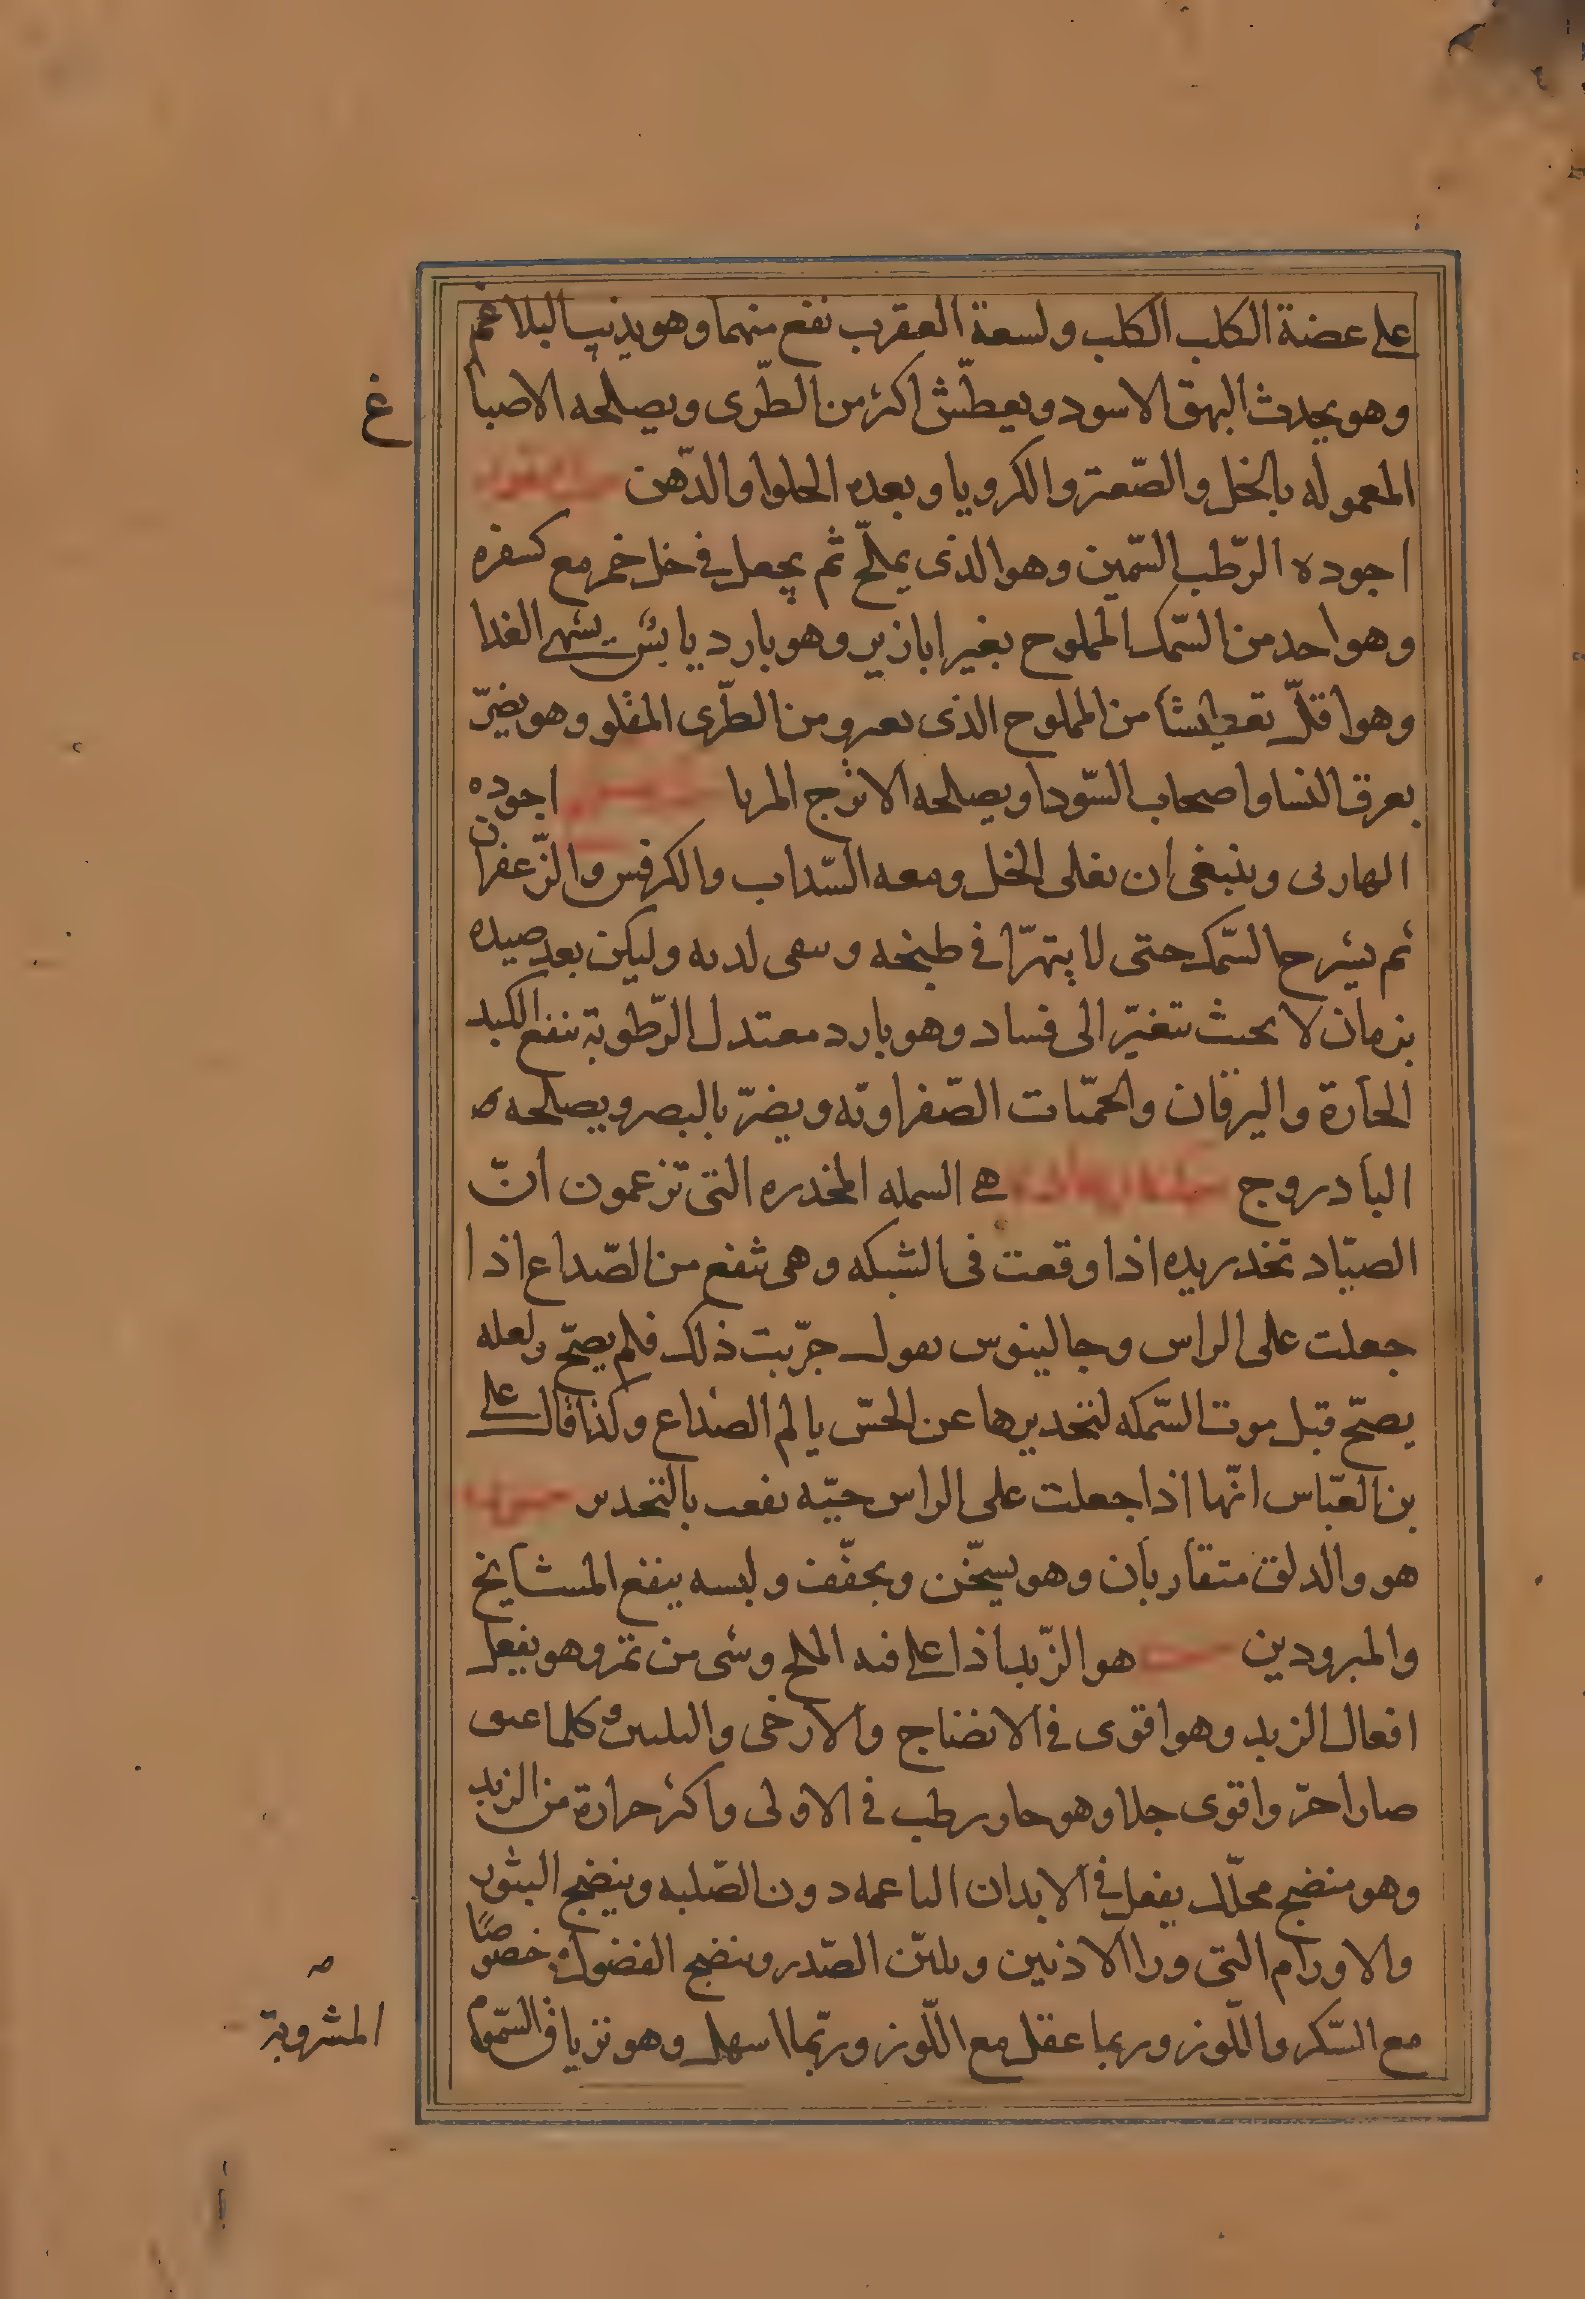 على عضة الكلب الكلب ولسعة العقرب نفع منهما وهو يذيب البلاغم
وهو يحدث البهق الاسود ويعطّش اكثر من الطّرى ويصلحه الاصبا
غ
المعموله بالخل والصّعتر والكرويا وبعده الحلوا والدّهن
اجوده الرّطب السّمين وهو الذى يملّح ثم يجعل فى خل خمر مع كسفره
وهو احد من السّمك المملوح بغير ابازير وهو بارد يابس يشهى الغدا
وهو اقلّ تعطيشا من المملوح الذى ومن الطّرى المقلو وهو يضرّ
بعرق النسا واصحاب السّودا ويصلحه الاترج المربا اجوده
الهاربى وينبغى ان يغلى الخل ومعه السّداب والكرفس والزّعفران
ثم يشرح السّمك حتى لا يتهرّا فى طبخه وليكن بعد صيده
بزمان لا بحيث يتغيّر الى فساد وهو بارد معتدل الرّطوبة ينفع الكبد
الحارّة واليرقان والحمّيات الصّفراويّه ويضرّ بالبصر ويصلحه
البادروج هى السمكه المخدره التى تزعمون انّ
الصيّاد تخدر يده اذا وقعت فى الشبكه وهى تنفع من الصّداع اذا
جعلت على الراس وجالينوس يقول جرّبت ذلك فلم يصحّ ولعله
يصحّ قبل موت السّمكه لتخديرها عن الحسّ بالم الصداع وكذا قال على
بن العبّاس انّها اذا جعلت على الراس حيّه نفعت بالتخدير
هو والدلق متقاربان وهو يسخّن ويجفّف ولبسه ينفع المشايخ
والمبرودين هو الزّبد اذا على فيه الملح وشى من تمر وهو يفعل
افعال الزبد وهو اقوى فى الانضاج والارخى والتليين وكلما عتق
صار احرّ واقوى جلا وهو حار رطب فى الاولى واكثر حرارة من الزبد
وهو منضج محلّل يفعل فى الابدان الناعمه دون الصّلبه وينضج البثور
والاورام التى ورا الاذنين ويليّن الصّدر وينضج الفضول فيه خصوصًا
مع السّكر واللّوز وربما عقل مع اللّوز وربّما اسهل وهو ترياق السّموم
المشروبة